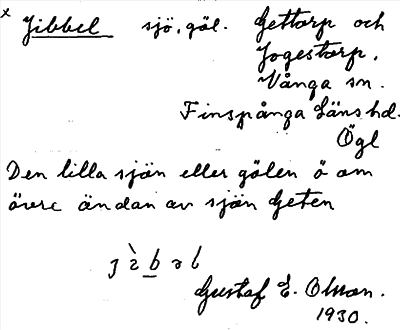 x Jibbel sjö, göl. Gettorp och
Jogestorp,
Vånga sn.
Finspånga Länshd.
Ögl
Den lilla sjön eller gölen ö om
övre ändan av sjön Geten
Gustaf E. Olsson.
1930.